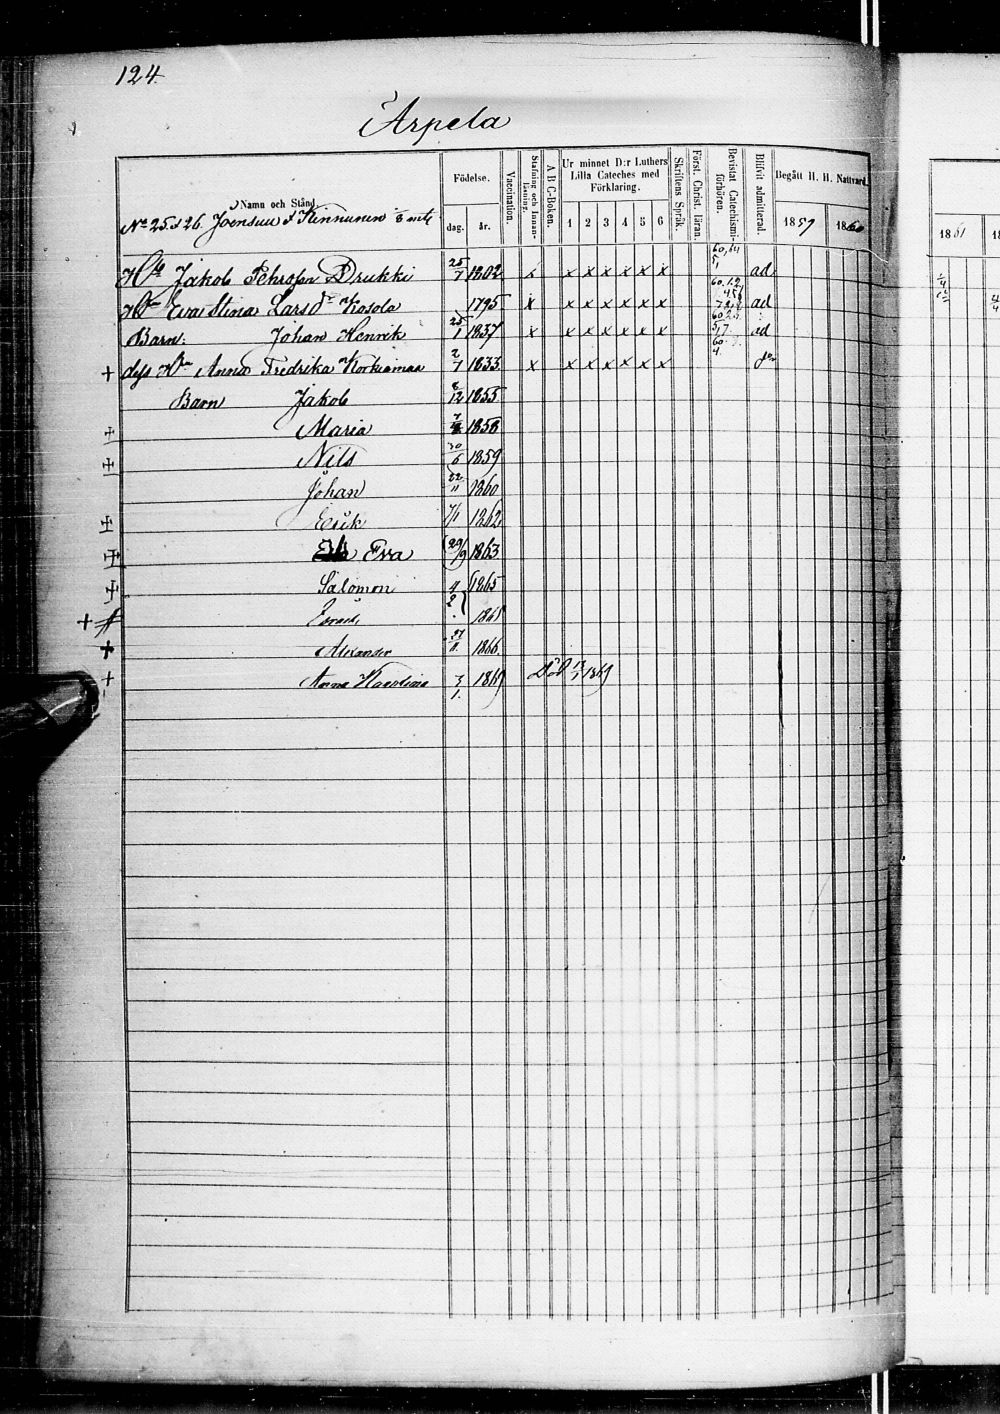 124.
Arpela
Namn och Stånd.
Födelse.
dag. år.
Vaccination.
Stafning och Innanläsning.
A B C-Boken.
Ur minnet D:r Luthers Lilla Cateches med Förklaring.
1 2 3 4 5 6
Skriftens Språk.
Först. Christ. läran.
Bevistat Catechismiförhören.
Blifvit admitterad.
Begått H. H. Nattvard.
1859 1860
1861
No 25 & 26. Joensuu & Kinnunen
Jakob Drukki 25/7 1802 x x x x x x x ad
Eva Stina Lars dr Kosola 1795 x x x x x x x ad
Barn: Johan Henrik 25/1 1837 x x x x x x x ad
+ Anna Fredrika Korkiamaa 2/7 1833 x x x x x x x
Barn Jakob 8/12 1855
Maria 1858
Nils 30/6 1859
Johan 22/11 1860
Erik 7/1 1862
Eva 29/9 1863
Salomon 1865
1865
Alexander 1866
+ Anna Karolina 3/1 1869 Död 1869